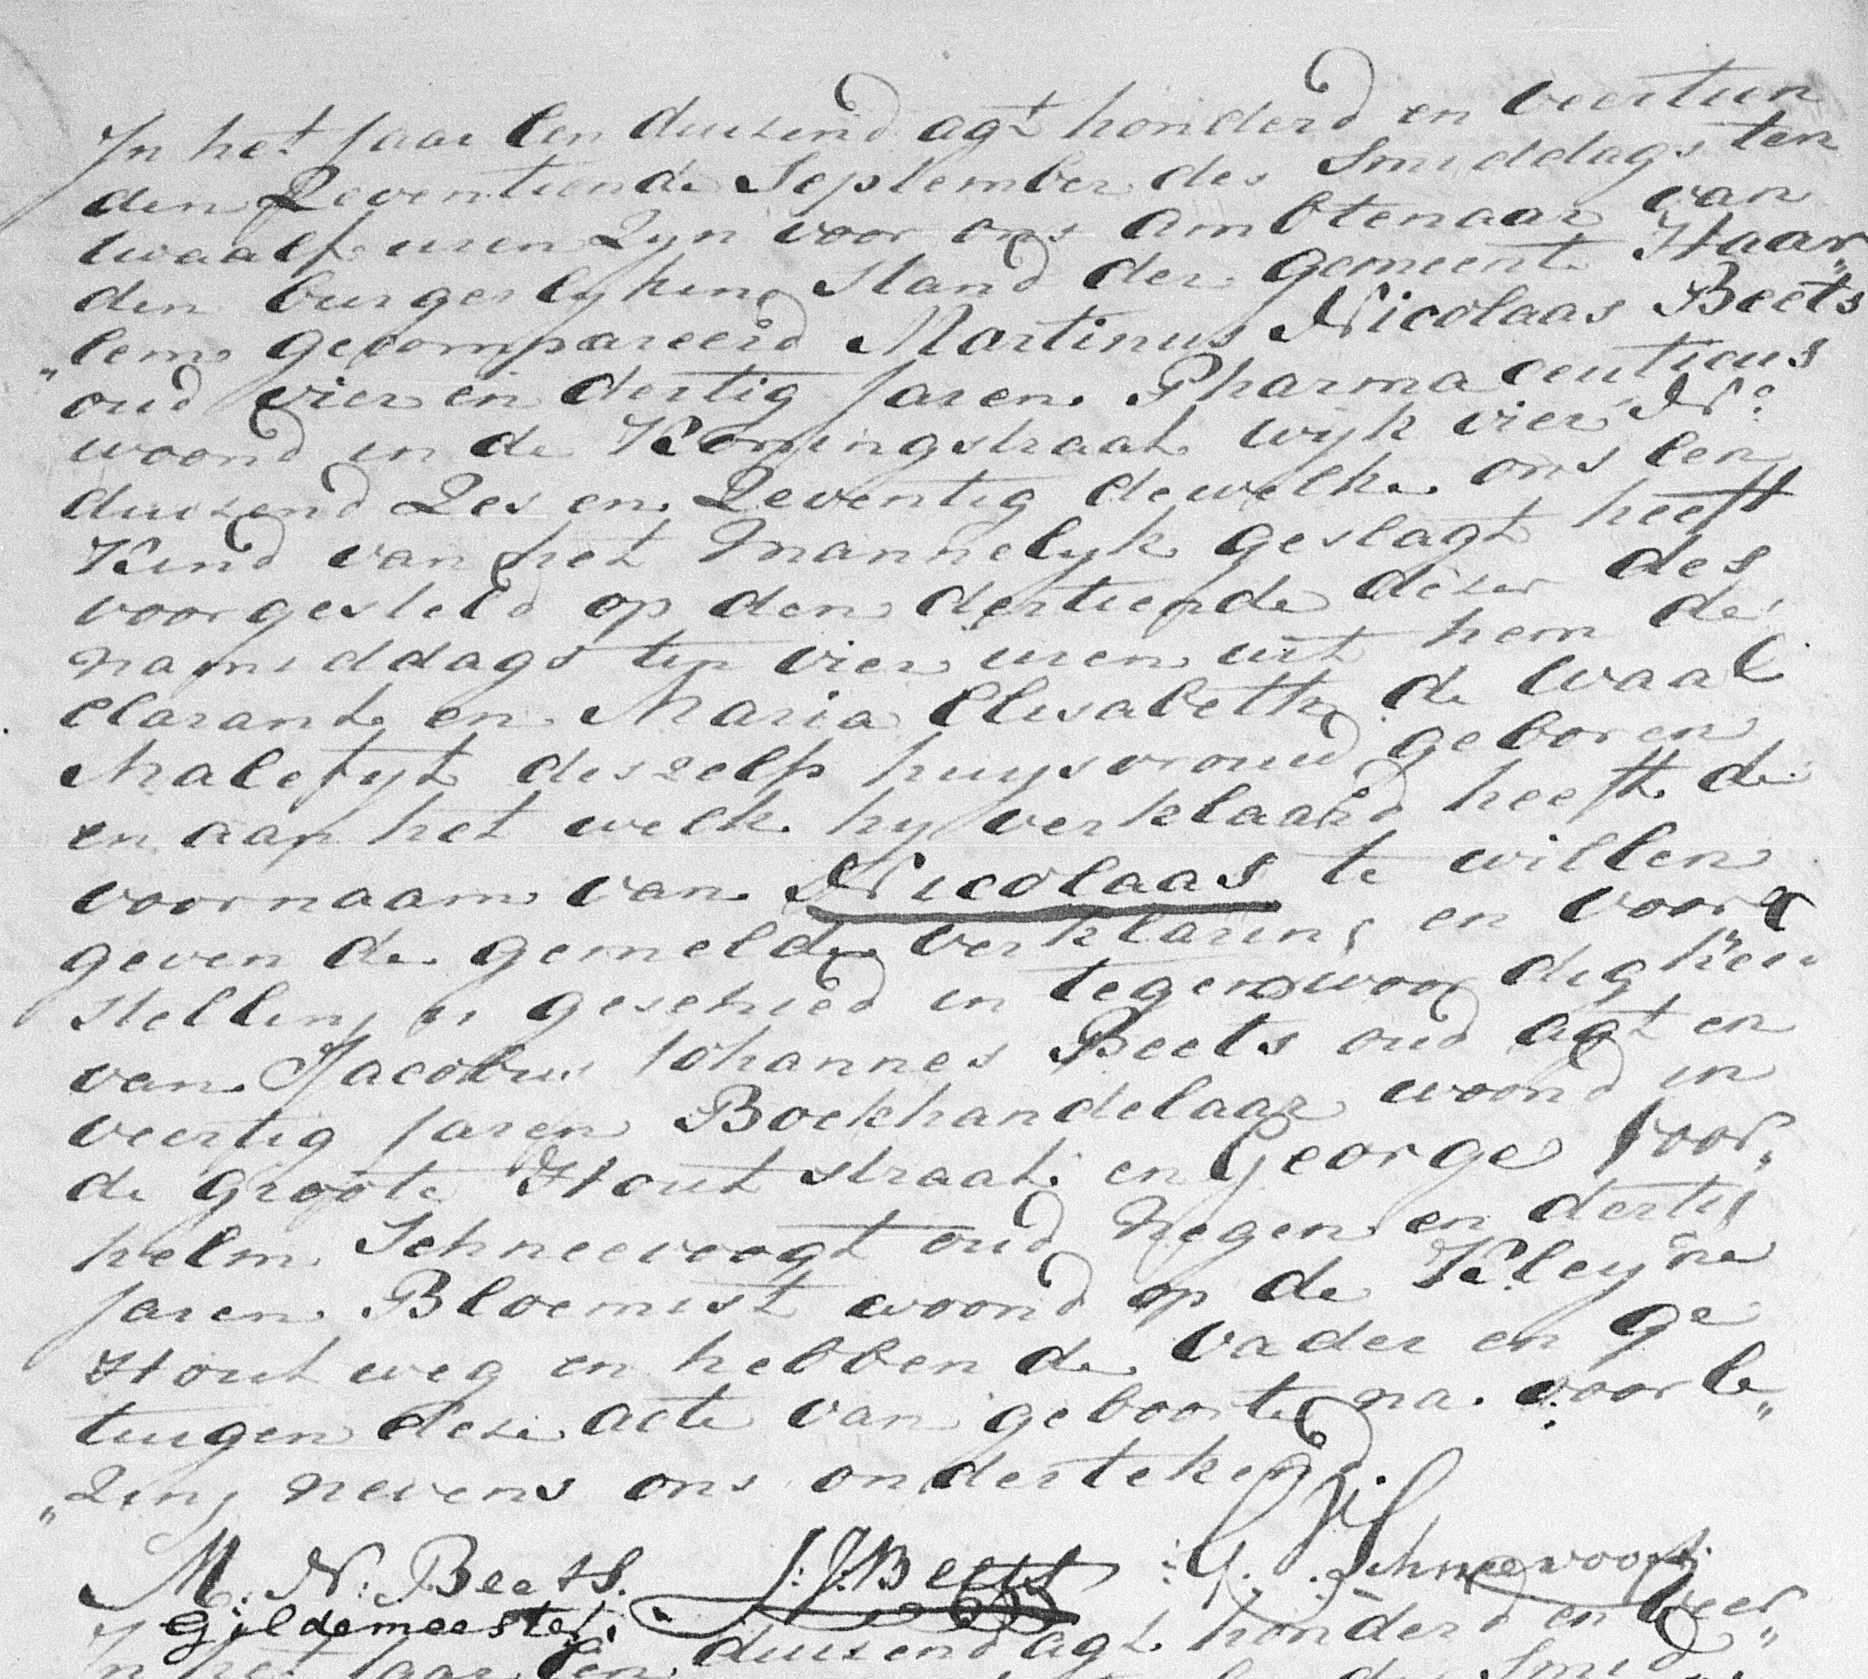 In het Jaar Een duizend agt honderd en veertien
den Zeventiende September des Smiddags ten
twaalf uren Zyn voor ons Ambtenaar van
den burgerlyken Stand der gemeente Haar„
„lem gecompareerd Martinus Nicolaas Beets
oud vier en dertig Jaren Pharmaceuticus
woond in de Koningstraat wijk vier No
duizend Zes en Zeventig dewelke ons Een
Kind van het Mannelyk geslagt heeft
voorgesteld op den dertiende dezer des
namiddags ten vier uren uit hem de
Clarant en Maria Elisabeth de Waal
Malefyt deszelfs huysvrouw geboren
en aan het welk hy verklaard heeft de
voornaam van Nicolaas te willen
geven de gemelde verklaring en voor
stelling is geschied in tegenwoordighei
van Jacobus Johannes Beets oud agt en
veertig Jaren Boekhandelaar woond in
de groote Hout straat en George Voor„
helm Schneevoogt oud Negen en dertig
Jaren Bloemist woond op de Kleyne
Hout weg en hebben de Vader en ge
tuigen deze acte van geboorte na voorle„
„Zing nevens ons ondertekend.
M: N: Beets. J: J: Beets G. V. Schneevoogt
Gildemeester.
In het Jaar Een duizend agt honderd en veer„